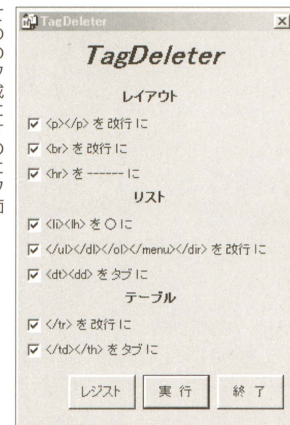 TagDeleter
TagDeleter
レイアウト
<p></p> を改行に
<br> を改行に
<hr> を ------ に
リスト
<li><lh> を〇に
</ul></dl></ol></menu></dir> を改行に
<dt><dd> をタブに
テーブル
</tr> を改行に
</td></th> をタブに
レジスト
実 行
終 了